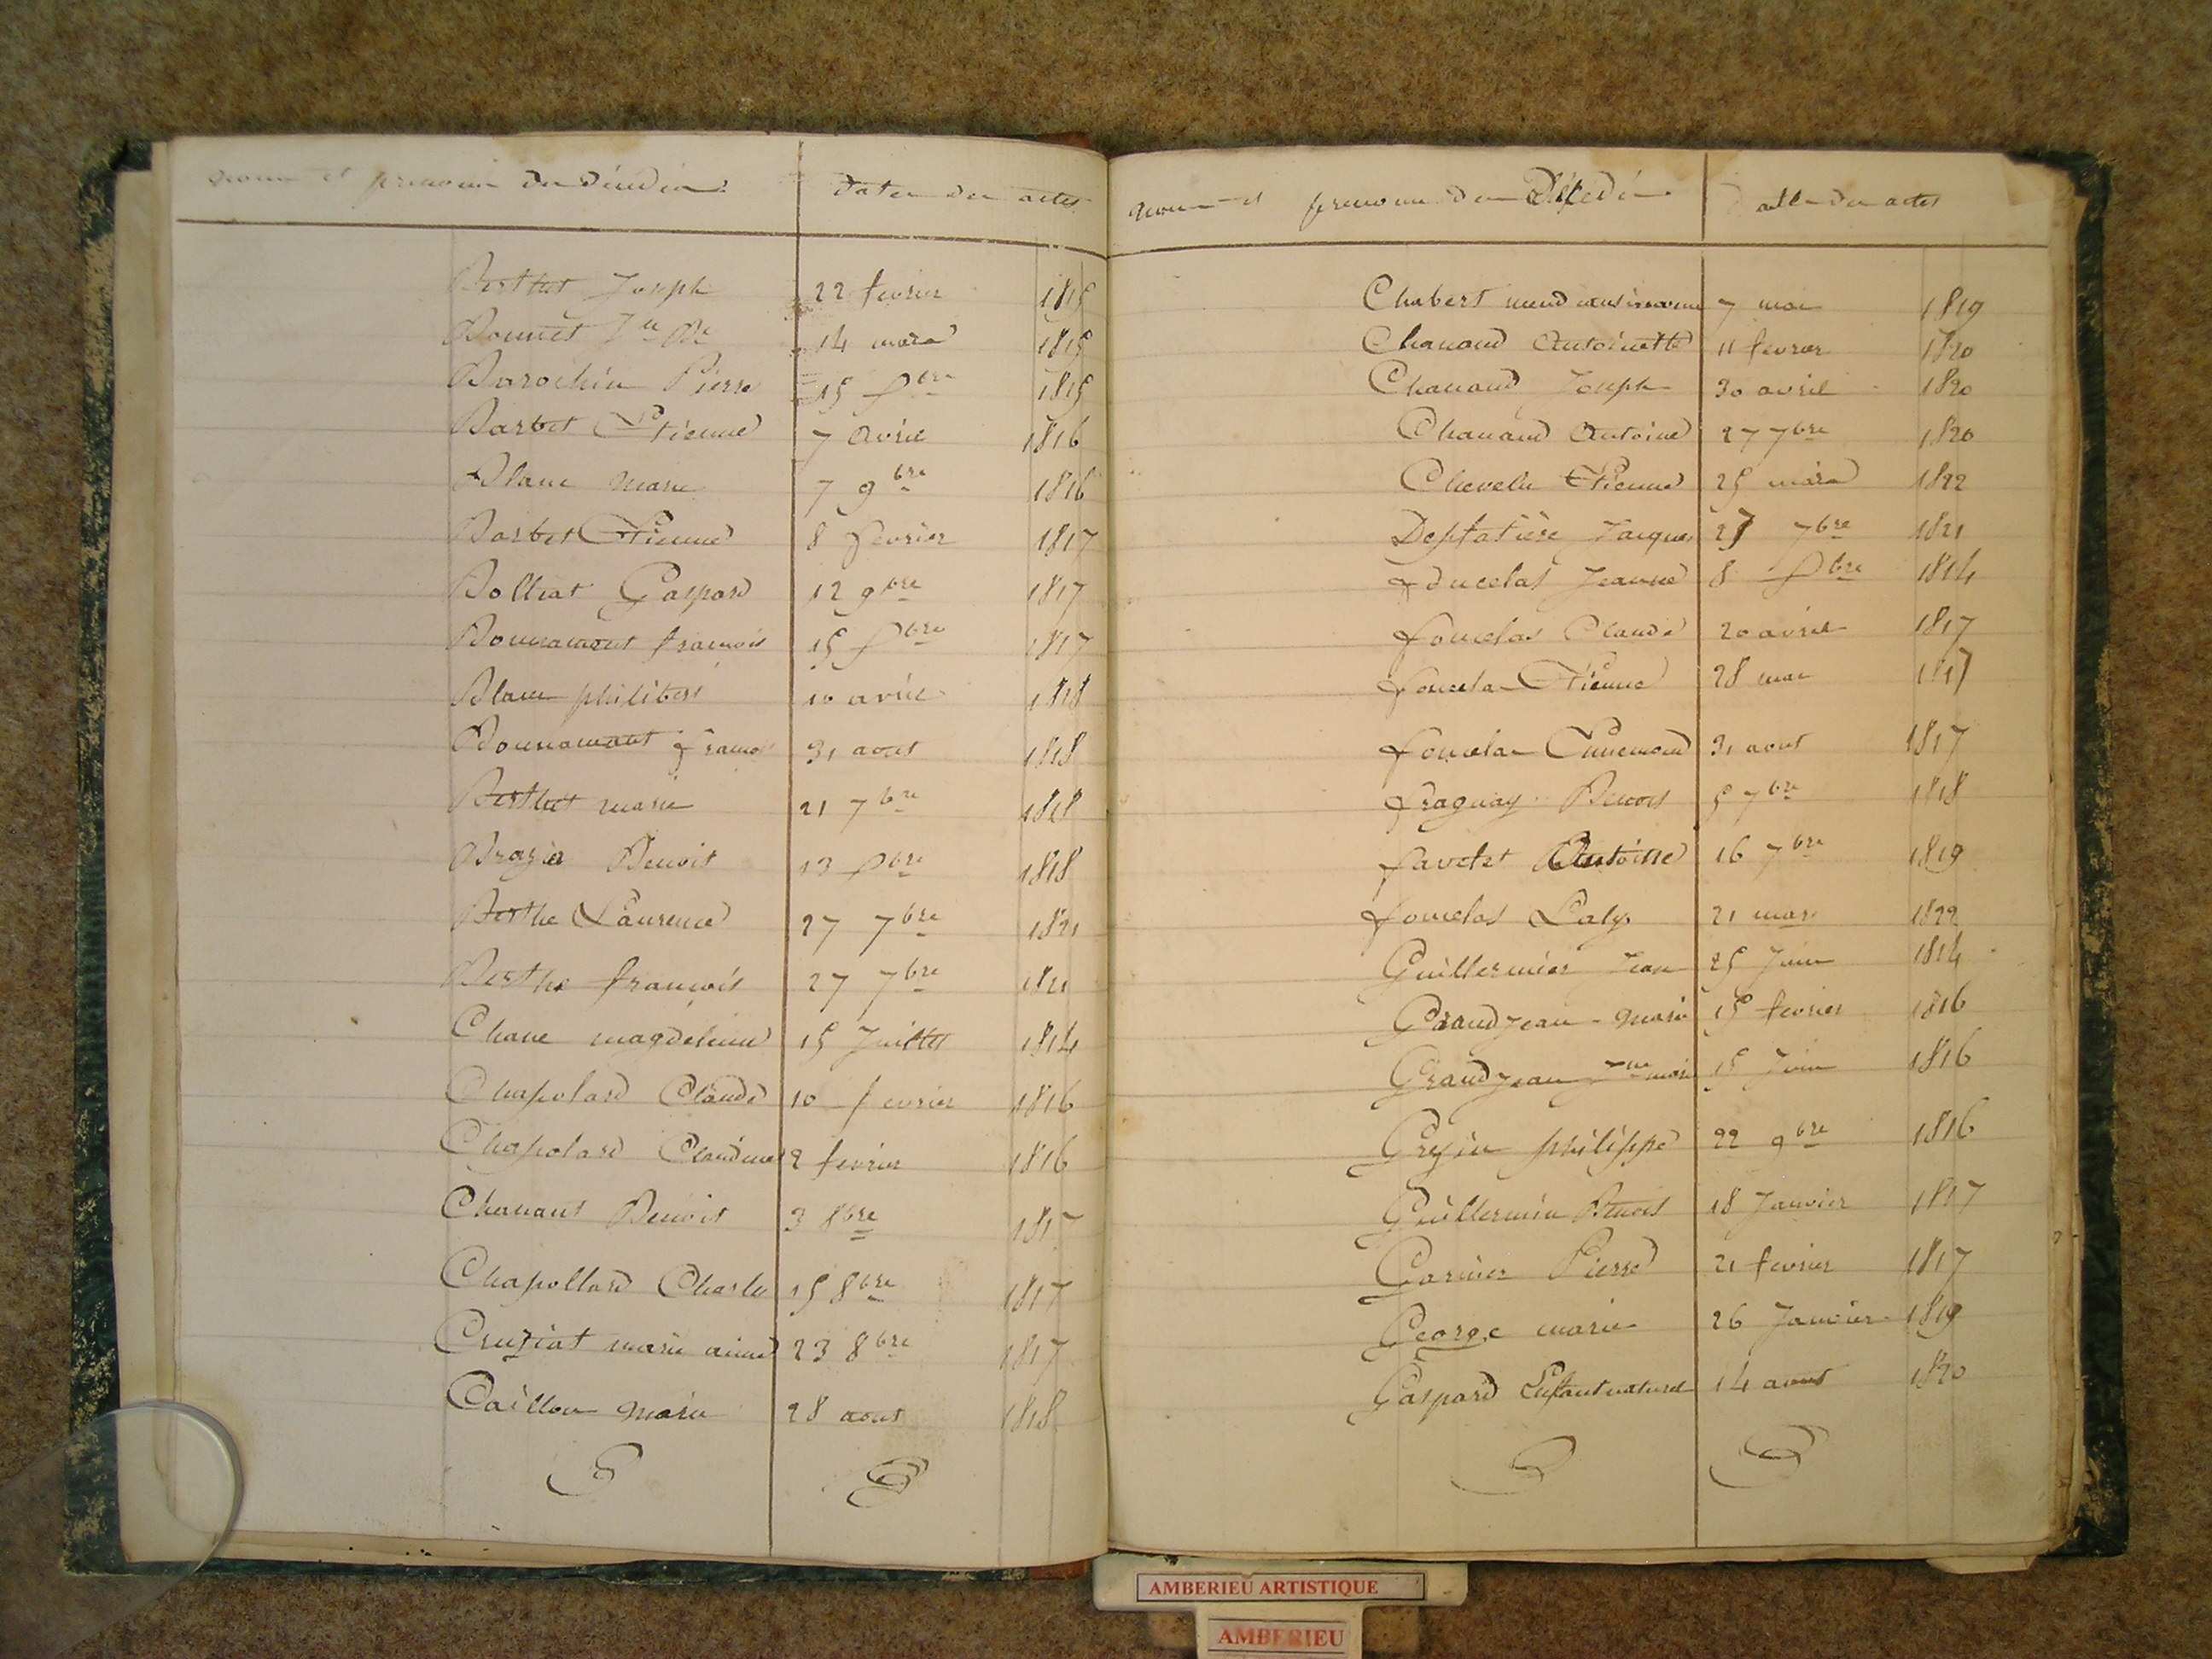 noms et prenoms des décédés dates des actes
Berthet Joseph 22 fevrier 1815
Bonnet Jn Bte 14 mars 1815
Barochin Pierre 15 Xbre 1815
Barbet Etienne 7 avril 1816
Blanc marie 7 9bre 1816
Barbet Etienne 8 fevrier 1817
Bolliat Gaspard 12 9bre 1817
Bonnamant francois 15 Xbre 1817
Blanc philibert 10 avril 1818
Bonnamant francois 31 aout 1818
Berthet marie 21 7bre 1818
Brazier Benoit 13 Xbre 1818
Berthe Laurence 27 7bre 1821
Berthe francois 27 7bre 1821
Chane magdeleine 15 Juillet 1814
Chapolard Claude 10 fevrier 1816
Chapolard Claudine 2 fevrier 1816
Chanant Benoit 3 8bre 1817
Chapollard Charle 15 8bre 1817
Cruziat marie aimé 23 8bre 1817
Caillon marie 28 aout 1818
noms et prenoms des Décédés datte des actes
Chabert 7 mai 1819
Chanand Antoinette 11 fevrier 1820
Chanand Joseph 30 avril 1820
Chanand Antoine 27 7bre 1820
Chevelu Etienne 25 mars 1822
Desplatière Jacques 27 7bre 1821
Jeanne 8 Xbre 1814
fouclas Claude 20 avril 1817
fouclas Etienne 28 mai 1817
fouclas Ennemond 31 aout 1817
fraguay Benois 5 7bre 1818
favelet Antoine 16 7bre 1819
fouclas Laly 21 mars 1822
Guillermier Jean 25 Juin 1814
Grandjean marie 15 fevrier 1816
Grandjean Jne marie 15 Juin 1816
Grezin philippe 22 9bre 1816
Guillermin Benois 18 Janvier 1817
Garnier Pierre 21 fevrier 1817
George marie 26 Janvier 1819
Gaspard Enfant naturel 14 aout 1820
AMBERIEU ARTISTIQUE
AMBERIEU